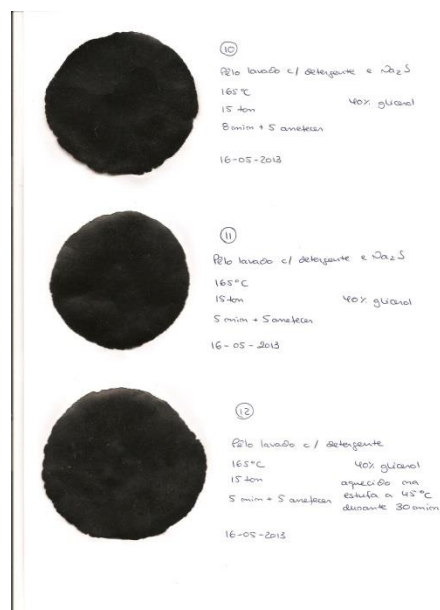 10
Pêlo lavado c/ detergente e Na2S
165°C
15 ton 40% glicerol
8 min + 5 arrefecer
16-05-2013
11
Pêlo lavado c/ detergente e Na2S
165°C
15 ton 40% glicerol
5 min + 5 arrefecer
16-05-2013
12
Pêlo lavado c/ detergente
165°C 40% glicerol
15 ton aquecido na
5 min + 5 arrefecer estufa a 45°C
durante 30 min
16-05-2013